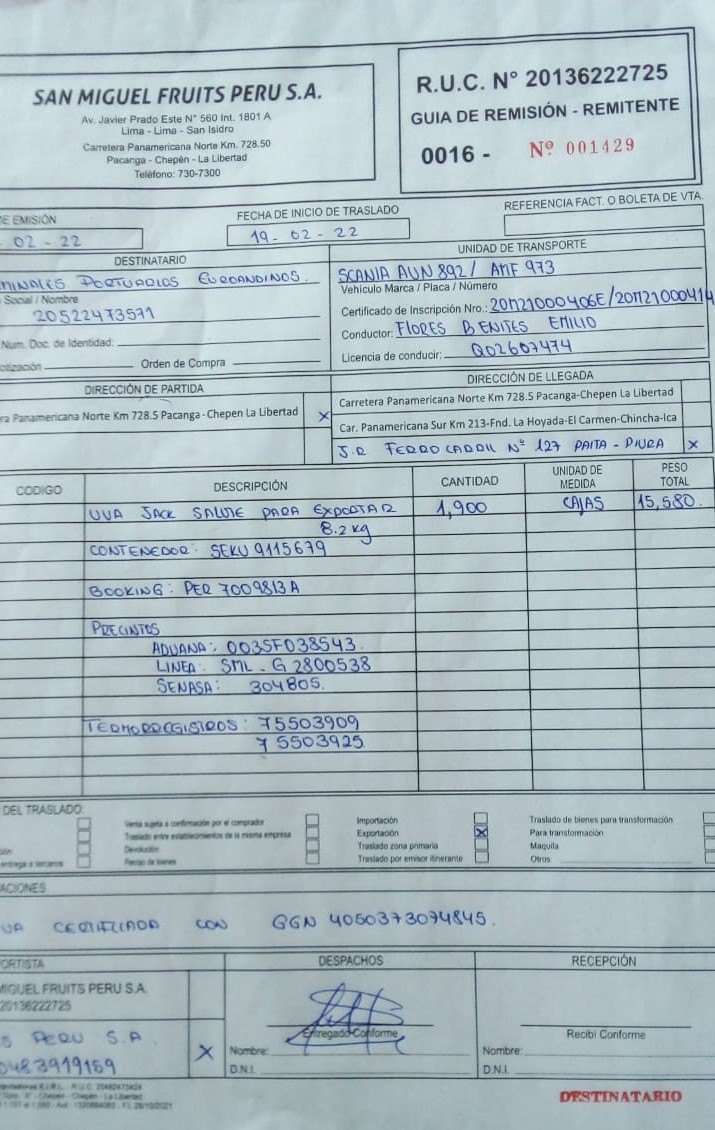 SAN MIGUEL FRUITS PERU S.A.
Av. Javier Prado Este N° 560 Int. 1801 A
Lima - Lima - San Isidro
Carretera Panamericana Norte Km. 728.50
Pacanga - Chepén - La Libertad
Teléfono: 730-7300
R.U.C. N° 20136222725
GUIA DE REMISIÓN - REMITENTE
0016 - Nº 001429
DE EMISIÓN
02 - 22
FECHA DE INICIO DE TRASLADO
19 - 02 - 22
REFERENCIA FACT. O BOLETA DE VTA.
DESTINATARIO
MINALES PORTUARIOS EUROANDINOS.
Social / Nombre
20522473571
Num. Doc. de Identidad:
otización Orden de Compra
UNIDAD DE TRANSPORTE
SCANIA AUN 892 / AMF 973
Vehículo Marca / Placa / Número
Certificado de Inscripción Nro.: 20M21000406E/20M21000414
Conductor: FLORES BENITES EMILIO
Licencia de conducir: Q02607474
DIRECCIÓN DE PARTIDA
era Panamericana Norte Km 728.5 Pacanga-Chepen La Libertad X
DIRECCIÓN DE LLEGADA
Carretera Panamericana Norte Km 728.5 Pacanga-Chepen La Libertad
Car. Panamericana Sur Km 213-Fnd. La Hoyada-El Carmen-Chincha-Ica
J.R FERROCARRIL Nº 127 PAITA - PIURA X
CODIGO DESCRIPCIÓN CANTIDAD UNIDAD DE MEDIDA PESO TOTAL
UVA JACK SALUTE PARA EXPORTAR 1,900 CAJAS 15,580.
8.2 kg
CONTENEDOR: SEKU 9115679
BOOKING: PER 7009813A
PRECINTOS
ADUANA: 0035F038543.
LINEA: SML - G 2800538
SENASA: 304805.
TERMOREGISTROS: 75503909
75503925
DEL TRASLADO
Venta sujeta a confirmación por el comprador
Traslado entre establecimientos de la misma empresa
Devolución
Recojo de bienes
entrega a terceros
Importación
Exportación X
Traslado zona primaria
Traslado por emisor itinerante
Traslado de bienes para transformación
Para transformación
Maquila
Otros
ACIONES
UVA CERTIFICADA CON GGN 4050373074845.
PORTISTA
MIGUEL FRUITS PERU S.A.
20136222725
S PERU S.A.
0483919159 X
DESPACHOS
Entregado Conforme
Nombre:
D.N.I.
RECEPCIÓN
Recibi Conforme
Nombre:
D.N.I.
DESTINATARIO